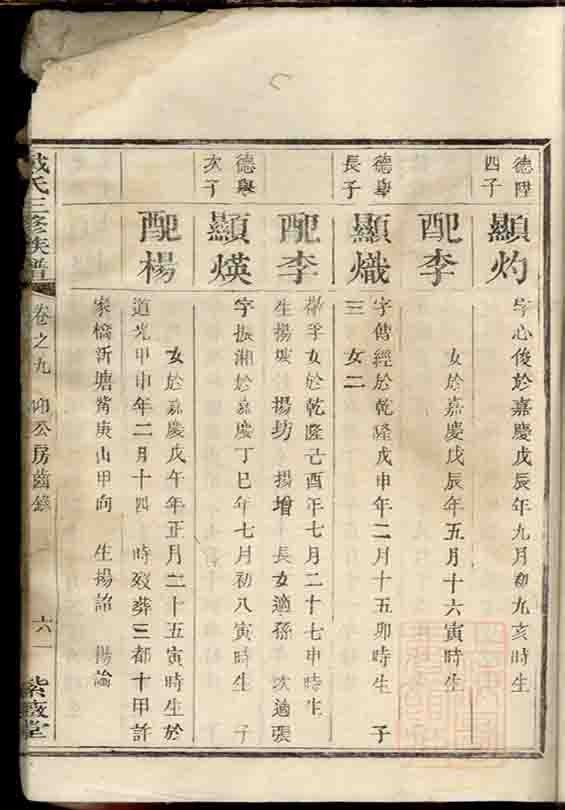 德陞
四子
顯灼
字心俊於嘉慶戊辰年九月初九亥時生
配李
女於嘉慶戊辰年五月十六寅時生
德舉
長子
顯熾
字傳經於乾隆戊申年二月十五卯時生 子
三 女二
配李
女於乾隆己酉年七月二十七申時生
生揚 揚坊 揚增 長女適孫 次適張
德舉
次子
顯煐
字振湘於嘉慶丁巳年七月初八寅時生 子
配楊
女於嘉慶戊午年正月二十五寅時生於
道光甲申年二月十四 時歿葬三都十甲許
家橋新塘觜庚山甲向 生揚詒 揚論
戴氏三修族譜
卷之九 仰公房齒錄
六一
紫薇堂